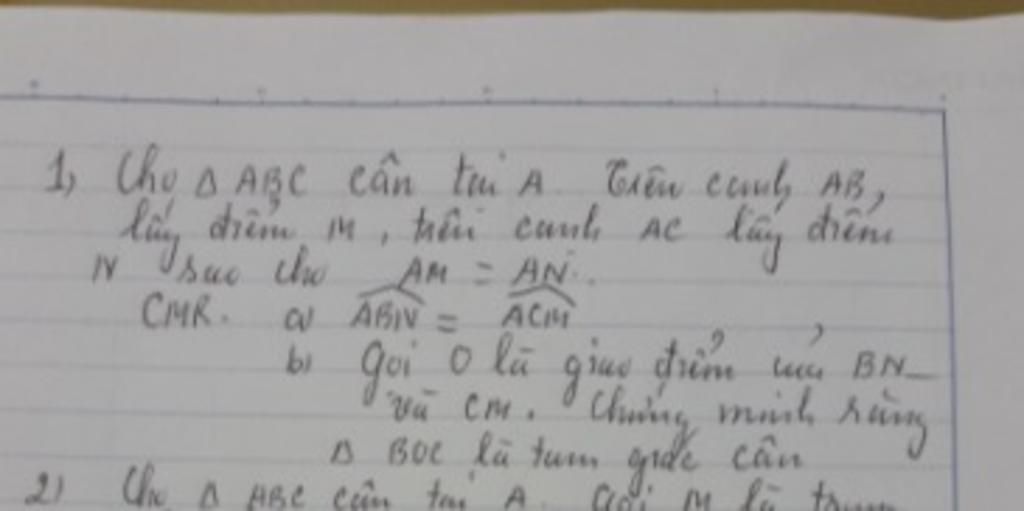 1, Cho Δ ABC cân tại A Trên cạnh AB,
lấy điểm M, trên cạnh AC lấy điểm
N sao cho AM = AN.
CMR. a) ABN = ACM
b) Gọi O là giao điểm của BN
và CM. Chứng minh rằng
Δ BOC là tam giác cân
2) Cho Δ ABC cân tại A Gọi M là trung